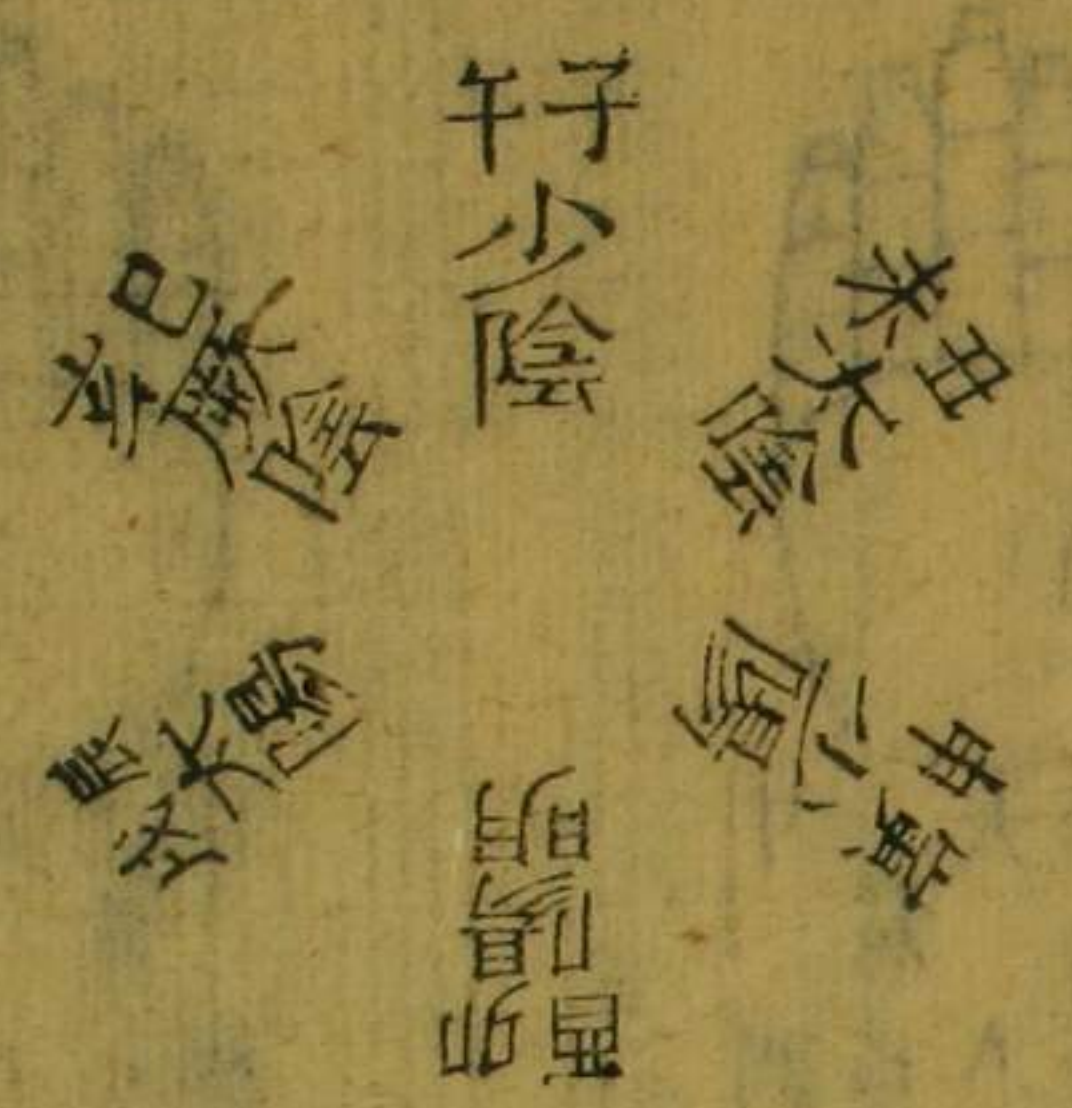 子午
少陰
丑未
大陰
寅申
少陽
卯酉
陽明
辰戌
大陽
巳亥
厥陰